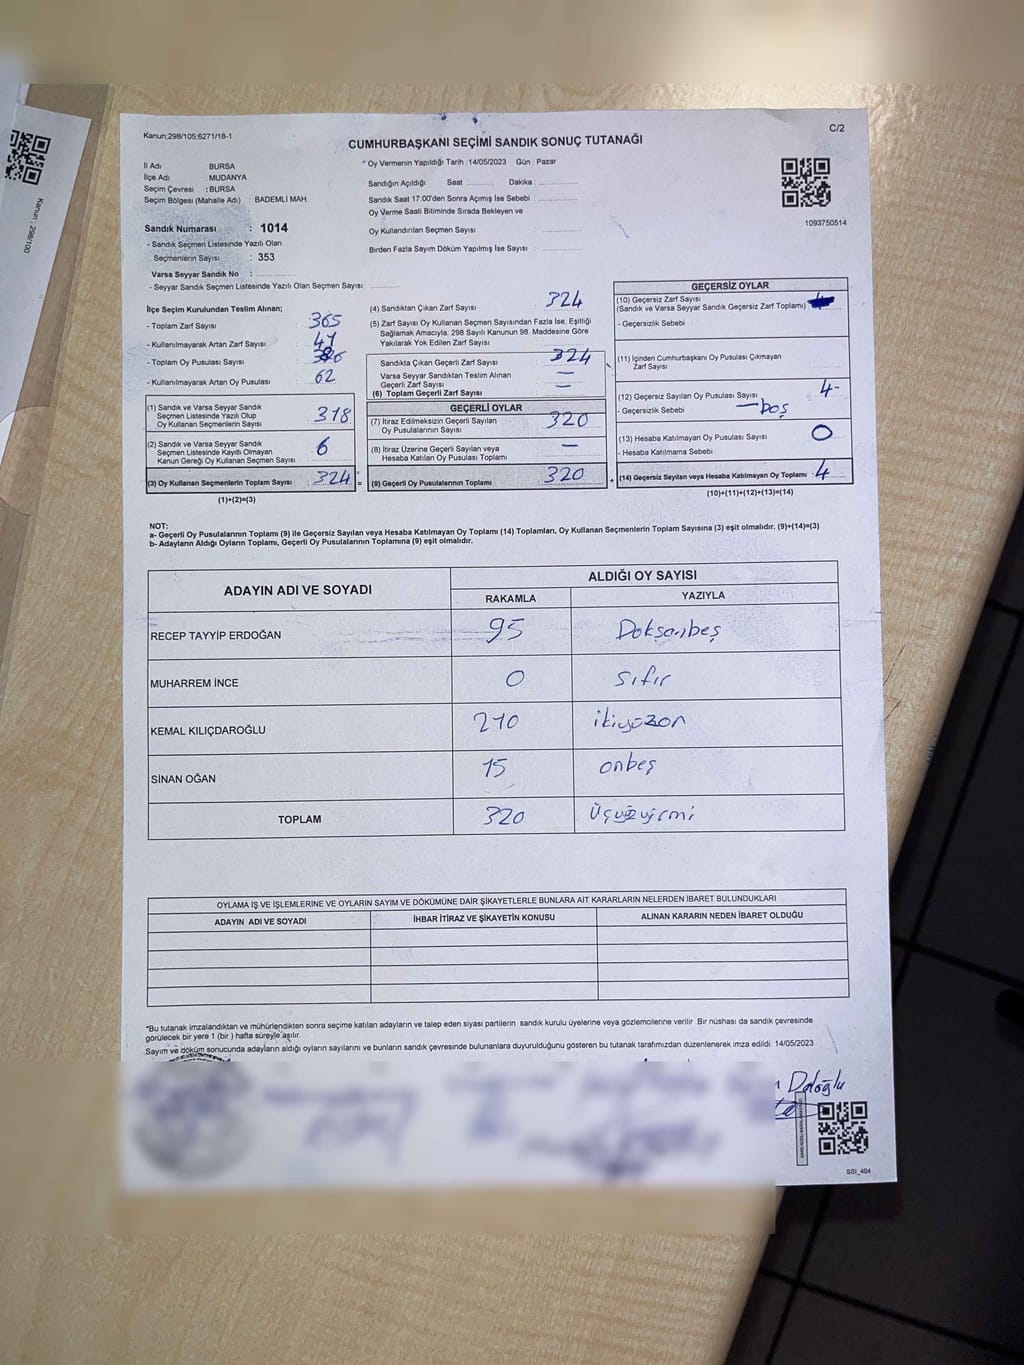 Kanun : 298/100
Kanun;298/105;6271/18-1
C/2
CUMHURBAŞKANI SEÇİMİ SANDIK SONUÇ TUTANAĞI
İl Adı : BURSA
İlçe Adı : MUDANYA
Seçim Çevresi : BURSA
Seçim Bölgesi (Mahalle Adı) : BADEMLİ MAH
Sandık Numarası : 1014
- Sandık Seçmen Listesinde Yazılı Olan
Seçmenlerin Sayısı : 353
Varsa Seyyar Sandık No :
- Seyyar Sandık Seçmen Listesinde Yazılı Olan Seçmen Sayısı
* Oy Vermenin Yapıldığı Tarih : 14/05/2023 Gün : Pazar
Sandığın Açıldığı Saat : Dakika :
Sandık Saat 17:00'den Sonra Açımış İse Sebebi :
Oy Verme Saati Bitiminde Sırada Bekleyen ve
Oy Kullandırılan Seçmen Sayısı :
Birden Fazla Sayım Döküm Yapılmış İse Sayısı :
1093750514
İlçe Seçim Kurulundan Teslim Alınan;
- Toplam Zarf Sayısı : 365
- Kullanılmayarak Artan Zarf Sayısı : 41
- Toplam Oy Pusulası Sayısı :
- Kullanılmayarak Artan Oy Pusulası : 62
(1) Sandık ve Varsa Seyyar Sandık
Seçmen Listesinde Yazılı Olup
Oy Kullanan Seçmenlerin Sayısı : 318
(2) Sandık ve Varsa Seyyar Sandık
Seçmen Listesinde Kayıtlı Olmayan
Kanun Gereği Oy Kullanan Seçmen Sayısı : 6
(3) Oy Kullanan Seçmenlerin Toplam Sayısı : 324 =
(1)+(2)=(3)
(4) Sandıktan Çıkan Zarf Sayısı : 324
(5) Zarf Sayısı Oy Kullanan Seçmen Sayısından Fazla İse, Eşitliği
Sağlamak Amacıyla; 298 Sayılı Kanunun 98. Maddesine Göre
Yakılarak Yok Edilen Zarf Sayısı :
Sandıkta Çıkan Geçerli Zarf Sayısı : 324
Varsa Seyyar Sandıktan Teslim Alınan
Geçerli Zarf Sayısı : —
(6) Toplam Geçerli Zarf Sayısı : —
GEÇERLİ OYLAR
(7) İtiraz Edilmeksizin Geçerli Sayılan
Oy Pusulalarının Sayısı : 320
(8) İtiraz Üzerine Geçerli Sayılan veya
Hesaba Katılan Oy Pusulası Toplamı : —
(9) Geçerli Oy Pusulalarının Toplamı : 320 +
GEÇERSİZ OYLAR
(10) Geçersiz Zarf Sayısı
(Sandık ve Varsa Seyyar Sandık Geçersiz Zarf Toplamı) :
- Geçersizlik Sebebi :
(11) İçinden Cumhurbaşkanı Oy Pusulası Çıkmayan
Zarf Sayısı :
(12) Geçersiz Sayılan Oy Pusulası Sayısı : 4-
- Geçersizlik Sebebi : — boş
(13) Hesaba Katılmayan Oy Pusulası Sayısı : 0
- Hesaba Katılmama Sebebi :
(14) Geçersiz Sayılan veya Hesaba Katılmayan Oy Toplamı : 4
(10)+(11)+(12)+(13)=(14)
NOT:
a- Geçerli Oy Pusulalarının Toplamı (9) ile Geçersiz Sayılan veya Hesaba Katılmayan Oy Toplamı (14) Toplamları, Oy Kullanan Seçmenlerin Toplam Sayısına (3) eşit olmalıdır. (9)+(14)=(3)
b- Adayların Aldığı Oyların Toplamı, Geçerli Oy Pusulalarının Toplamına (9) eşit olmalıdır.
ADAYIN ADI VE SOYADI ALDIĞI OY SAYISI
RAKAMLA YAZIYLA
RECEP TAYYİP ERDOĞAN 95 Doksanbeş
MUHARREM İNCE 0 sıfır
KEMAL KILIÇDAROĞLU 210 ikiyüzon
SİNAN OĞAN 15 onbeş
TOPLAM 320 Üçyüzyirmi
OYLAMA İŞ VE İŞLEMLERİNE VE OYLARIN SAYIM VE DÖKÜMÜNE DAİR ŞİKAYETLERLE BUNLARA AİT KARARLARIN NELERDEN İBARET BULUNDUKLARI
ADAYIN ADI VE SOYADI İHBAR İTİRAZ VE ŞİKAYETİN KONUSU ALINAN KARARIN NEDEN İBARET OLDUĞU
*Bu tutanak imzalandıktan ve mühürlendikten sonra seçime katılan adayların ve talep eden siyasi partilerin sandık kurulu üyelerine veya gözlemcilerine verilir. Bir nüshası da sandık çevresinde
görülecek bir yere 1 (bir ) hafta süreyle asılır.
Sayım ve döküm sonucunda adayların aldığı oyların sayılarını ve bunların sandık çevresinde bulunanlara duyurulduğunu gösteren bu tutanak tarafımızdan düzenlenerek imza edildi. 14/05/2023
SSİ_404